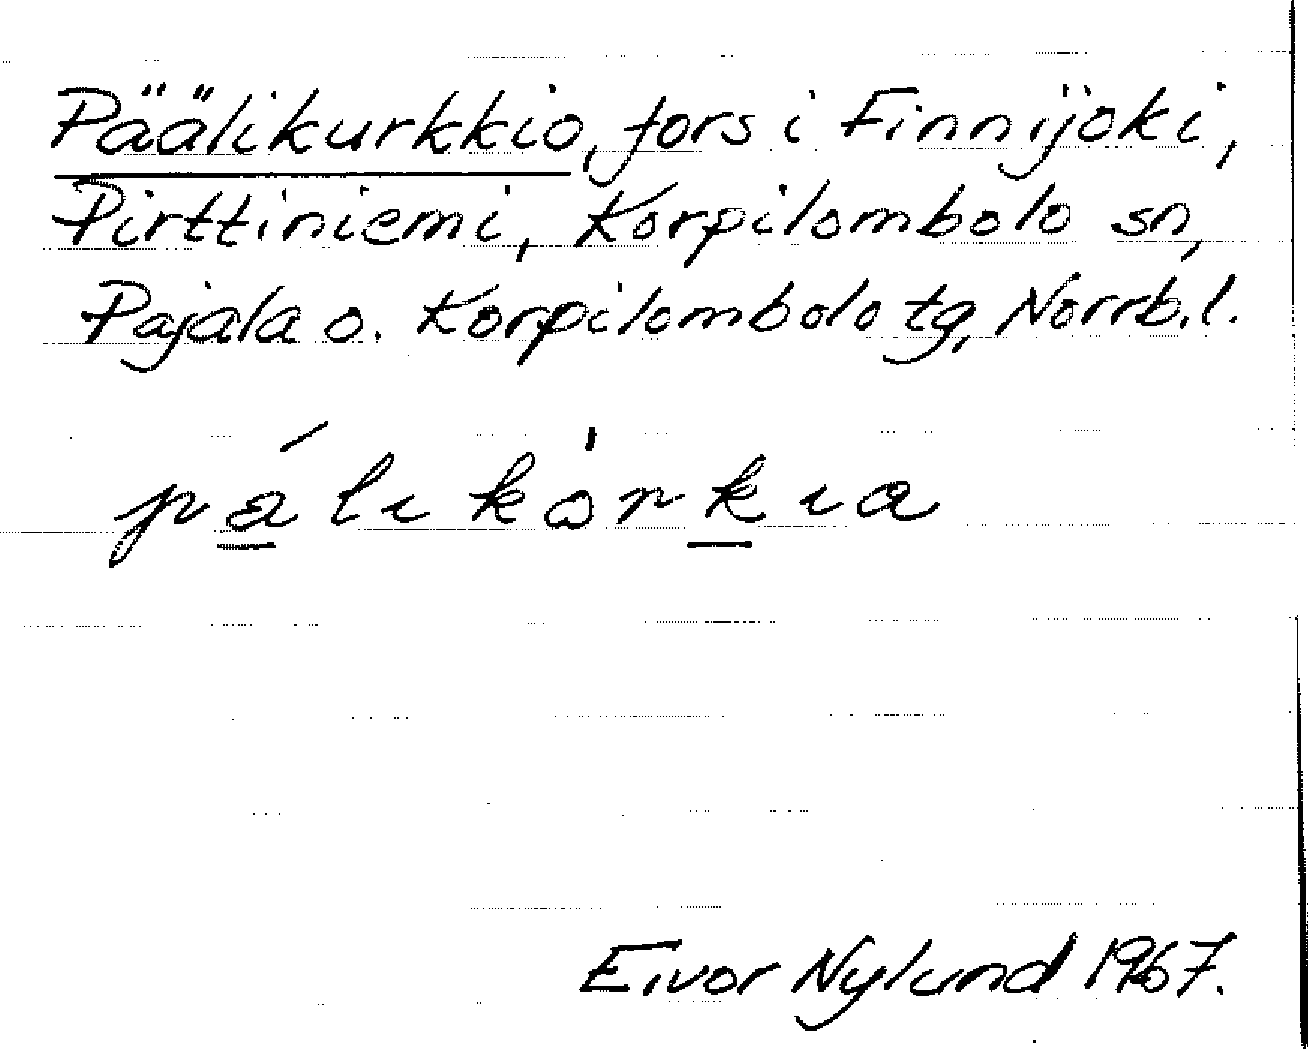 Päälikurkkio, fors i Finnijoki,
Pirttiniemi, Korpilombolo sn,
Pajala o. Korpilombolo tg, Norrb.l.
Eivor Nylund 1967.